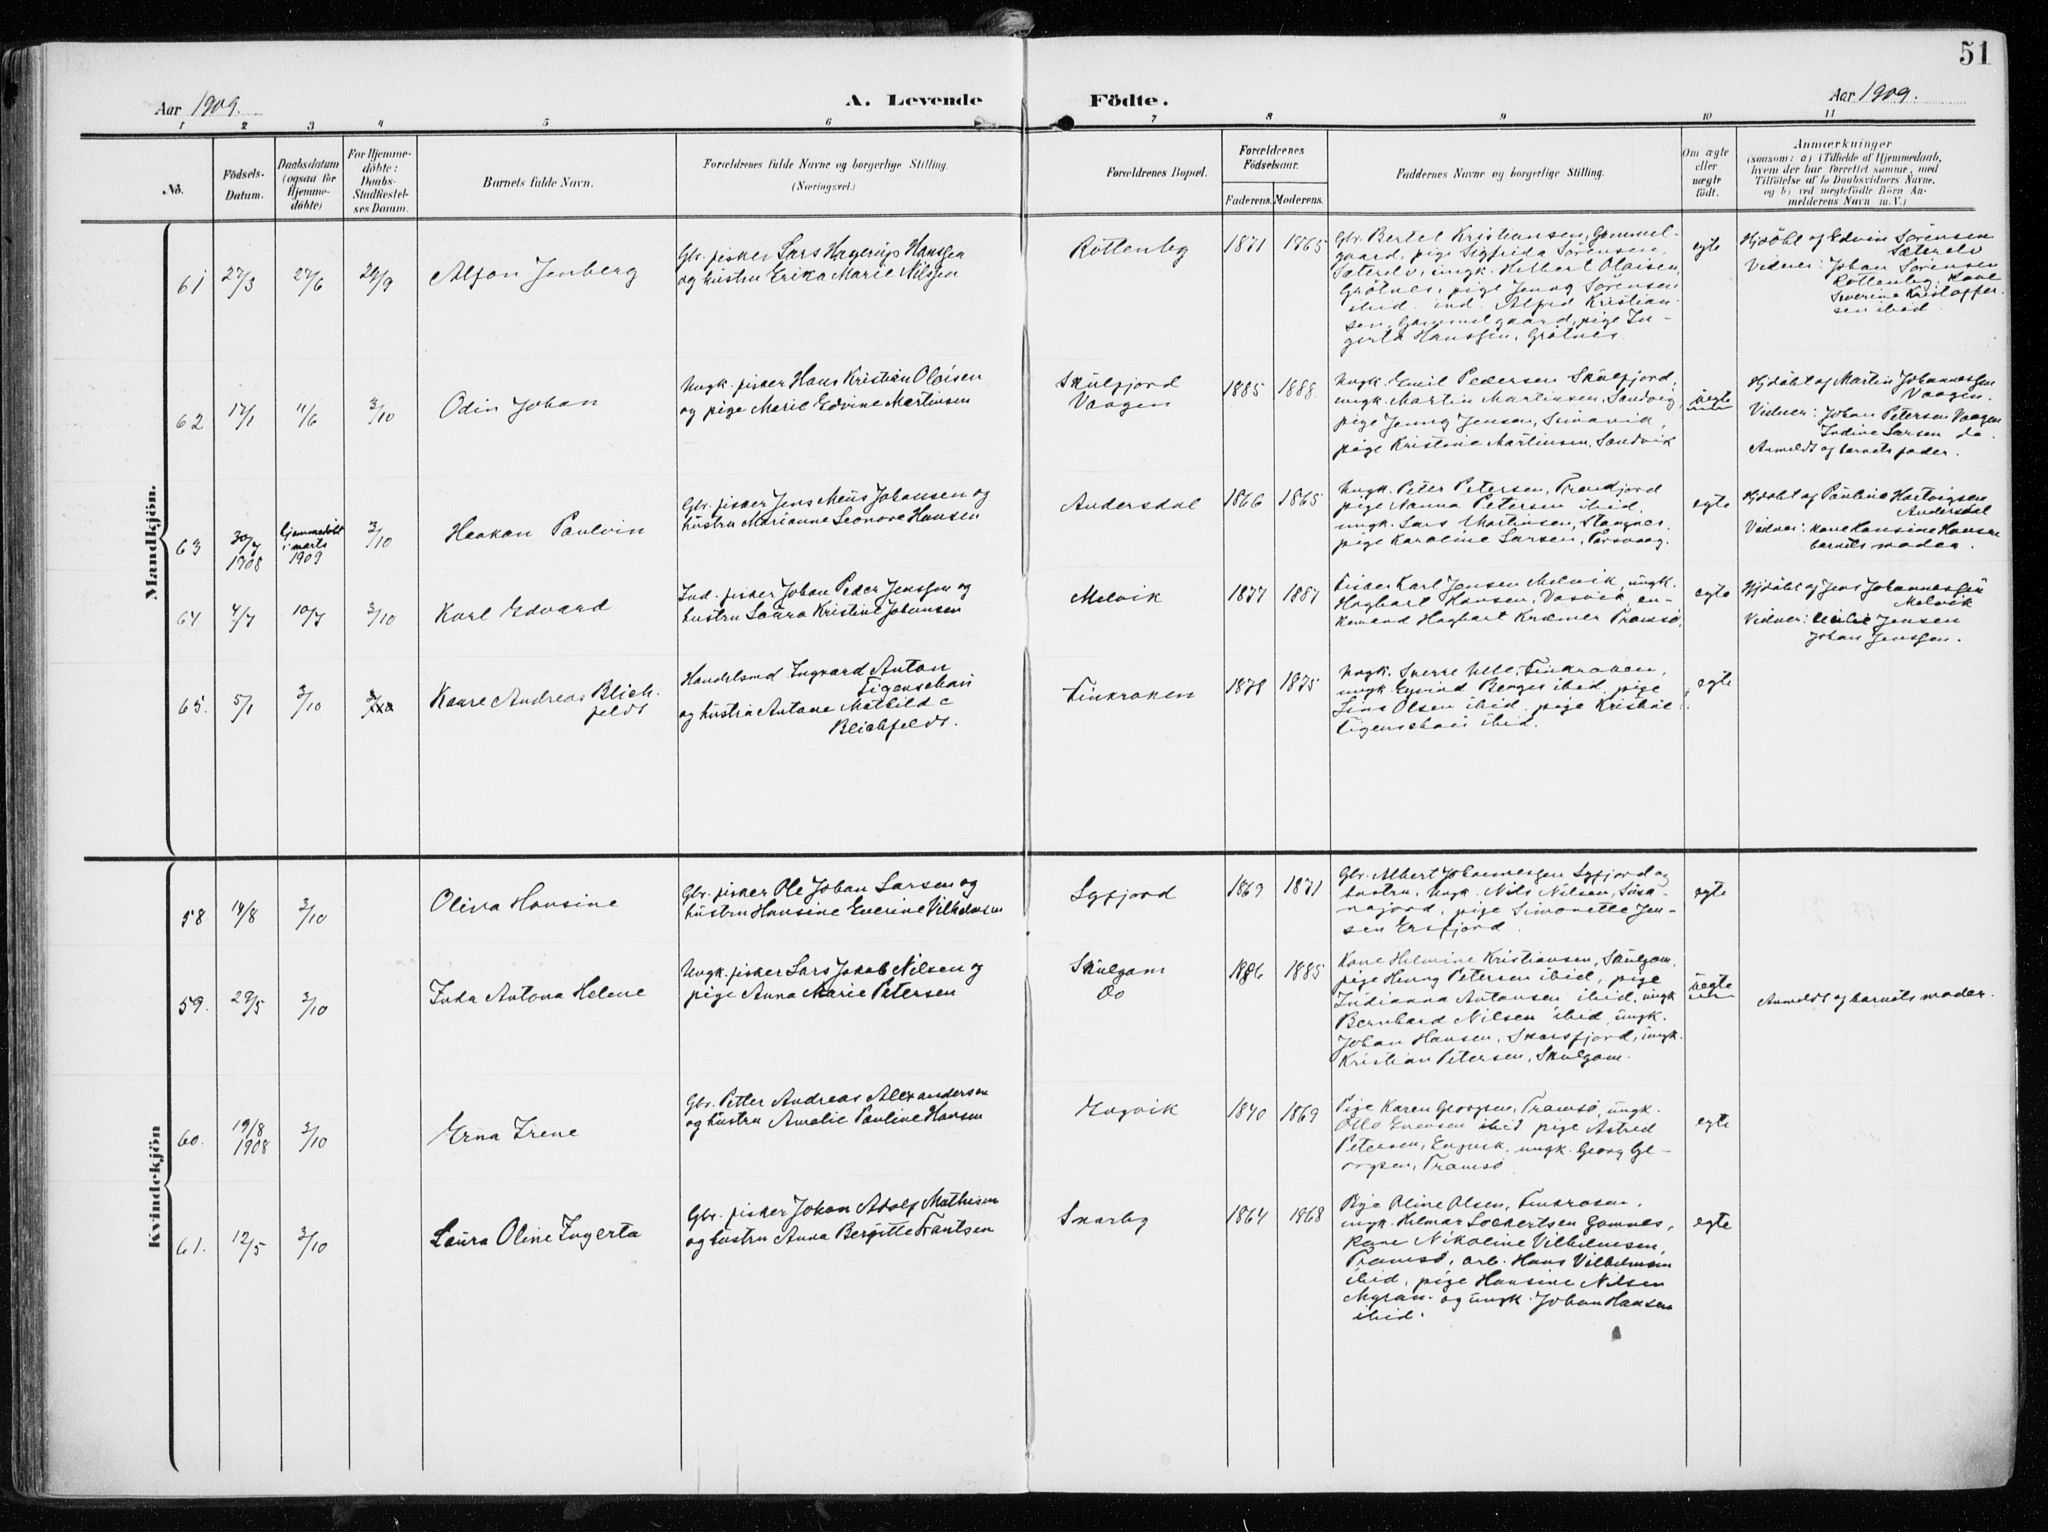 51
Aar 1909.
A. Levende Födte.
Aar 1909.
1 2 3 4 5 6 7 8 9 10 11
No.
Födsels-
Datum.
Daabsdatum
(ogsaa for
Hjemme-
döbte)
For Hjemme-
döbte:
Daabs-
Stadfæstel-
ses Datum.
Barnets fulde Navn.
Forældrenes fulde Navne og borgerlige Stilling.
(Næringsvei.)
Forældrenes Bopæl.
Forældrenes
Födselsaar.
Faderens. Moderens.
Faddernes Navne og borgerlige Stilling.
Om ægte
eller
uægte
födt.
Anmærkninger
(saasom: a) i Tilfælde af Hjemmedaab,
hvem der har forrettet samme, med
Tilföielse af to Daabsvidners Navne,
og b) ved uægtefödte Börn An-
melderens Navn m.V.)
Mandkjön.
61 27/3 27/6 29/9 Alfon Jenberg
Gbr. fisker Lars Hagerup Hanssen
og hustru Erika Marie Nilsen
Rottenby 1871 1865
Gbr. Bertel Kristiansen, Gammel-
gaard, pige Sigfrida Sørensen
Sæterelv, ungk. Hilbert Olaisen,
Grøtnes, pige Jenny Sørensen
ibid. ind. Alfred Kristian-
sen, Gammelgaard, pige In-
gerta Hanssen, Grøtnes.
egte
Hjdøbt af Edvin Sørensen
Sæterelv
Vidner: Johan Sørensen
Rottenby, Kone
Severine Kristoffer-
sen ibid.
62 17/1 11/6 3/10 Odin Johan
Ungk. fisker Hans Kristian Olaisen
og pige Marie Edvine Martinsen
Skulfjord
Vaagen
1885 1888
Ungk. Emil Pedersen Skulfjord,
ungk. Martin Martinsen, Sandvig,
pige Jenny Jensen, Simavik,
pige Kristine Martinsen, Sandvik
uegte
Hjdøbt af Martin Johannessen
Vaagen.
Vidner: Johan Petersen Vaagen
Indine Larsen do.
Anmeldt af barnets fader.
63 30/7 1908 hjemmedøbt
i marts
1909
3/10 Haakon Paulvin
Gbr. fisker Jens Meüs Johansen og
hustru Marianne Leonore Hansen
Andersdal 1866 1865
Ungk. Peter Petersen, Trendjord
pige Nanna Petersen ibid.
ungk. Lars Martinsen, Stagnes,
pige Karoline Larsen, Torsvaag.
egte
Hjdøbt af Pauline Hartvigsen
Andersdal
Vidner: kone Hansine Hansen
barnets moder.
64 4/7 10/7 3/10 Karl Edvard
Ind. fisker Johan Peder Jenssen og
hustru Laura Kristine Johansen
Melvik 1877 1887
Fisker Karl Jensen Melvik, ungk.
Hagbart Hansen, Vasvik en-
kemand Hagbart Kræmer Tromsø.
egte
Hjdøbt af Jens Johannessen
Melvik
Vidner: Cecilie Jensen
Johan Jenssen.
65. 5/1 3/10 Kaare Andreas Blich-
feldt
Handelsmd. Ingvard Anton
Figenschau
og hustru Antone Mathilde
Blichfeldt.
Finkroken 1878 1875
Ungk. Sverre Uhl, Finkroken,
ungk. Eyvind Berges ibid. pige
Lina Olsen ibid. pige Kristine
Figenschau ibid.
egte
Kvindekjön
58 14/8 3/10 Oliva Hansine
Gbr. fisker Ole Johan Larsen og
hustru Hansine Everine Vilhelmsen
Lyfjord 1869 1871
Gbr. Albert Johannessen Lyfjord og
hustru, ungk. Nils Nilsen, Susa-
najord, pige Simonette Jen-
sen Ersfjord.
egte
59. 29/5 3/10 Inda Antona Helene
Ungk. fisker Lars Jakob Nilsen og
pige Anna Marie Petersen
Skulgam
Do
1886 1885
Kone Helmine Kristiansen, Skulgam.
pige Henny Petersen ibid, pige
Indianna Antonsen ibid, ungk
Bernhard Nilsen ibid, ungk.
Johan Hansen, Skarsfjord, ungk.
Kristian Petersen, Skulgam.
uegte
Anmeldt af barnets moder.
60. 19/8
1908
3/10 Erna Irene
Gbr. Petter Andreas Alexandersen
og hustru Amalie Pauline Hansen
Engvik 1870 1869
Pige Karen Georgsen, Tromsø, ungk.
Otto Evensen ibid pige Astrid
Petersen, Engvik, ungk. Georg Ge-
orgsen, Tromsø
egte
61. 12/5 3/10 Laura Oline Ingerta
Gbr. fisker Johan Adolf Mathisen
og hustru Anna Bergitte Frantsen
Skarby 1864 1868
Pige Oline Olsen, Finkroken,
ungk. Helmar Lockertsen Gamnes,
Kone Nikoline Vilhelmsen,
Tromsø, arb. Hans Vilhelmsen
ibid, pige Hansine Nilsen
Myran og ungk. Johan Hansen
ibid.
egte